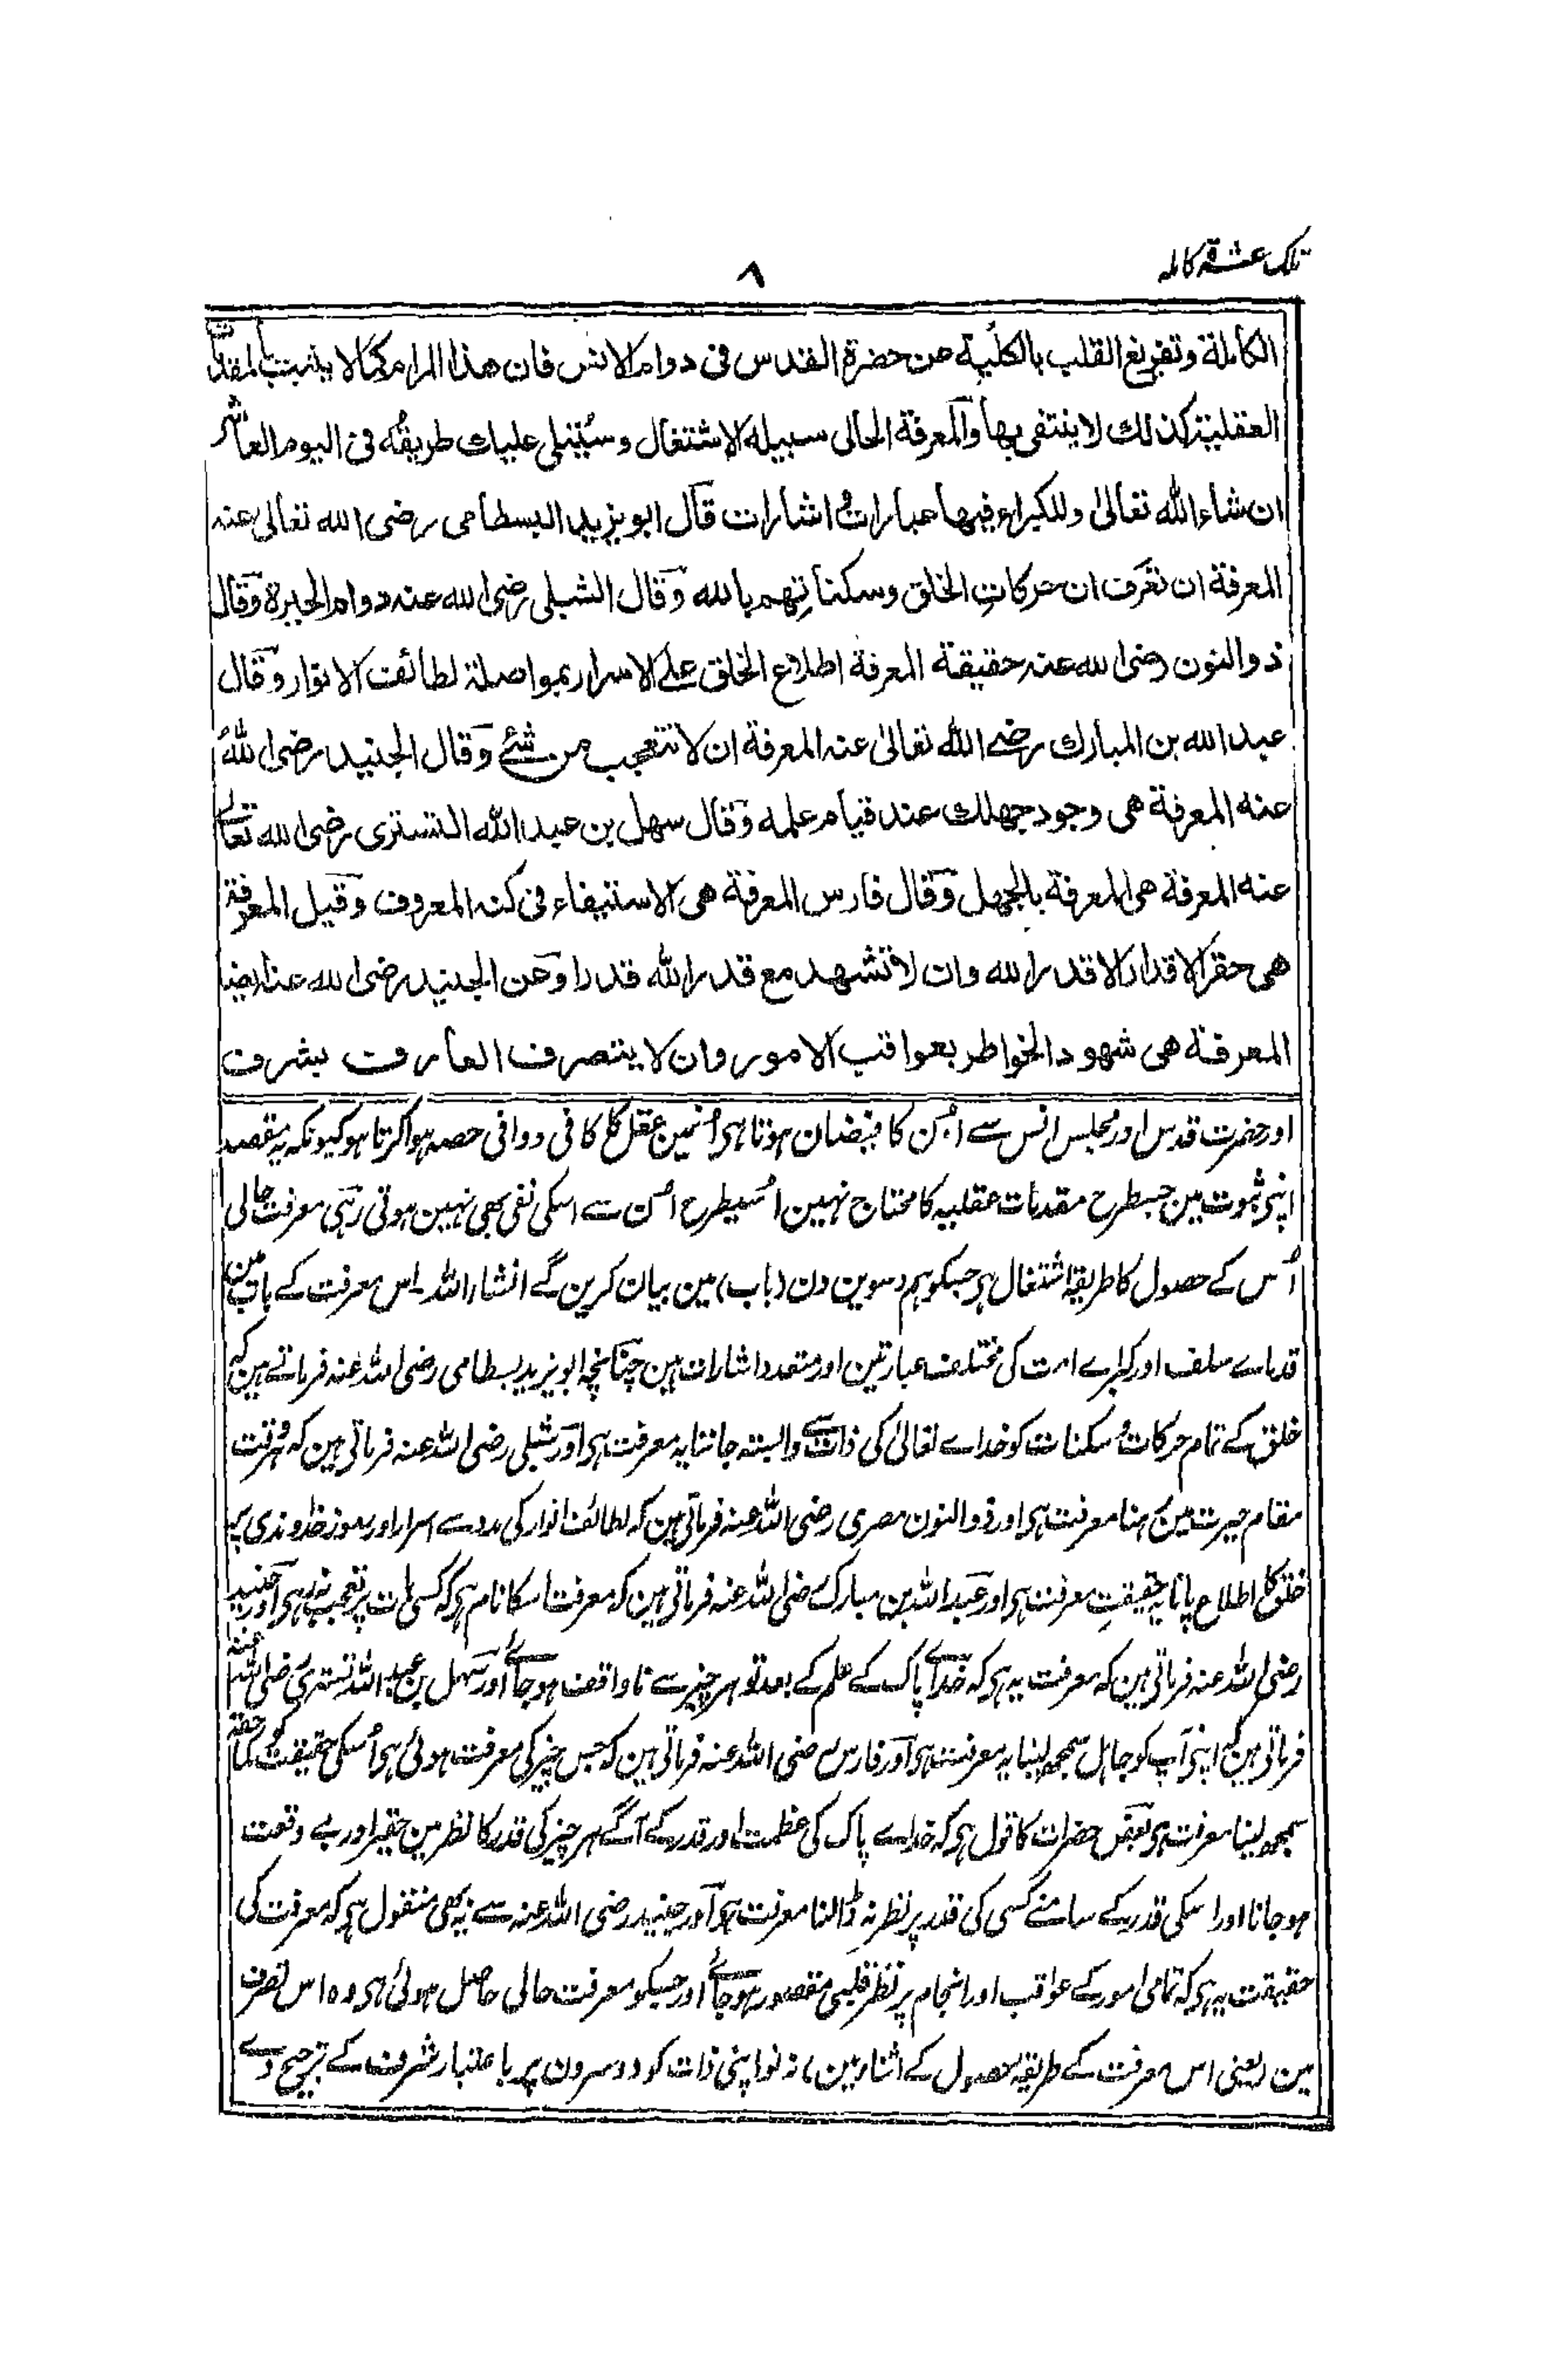 تلک عشرۃ کاملہ
۸
الکاملة وتفریغ القلب بالکلّیة من حضرة القدس فی دوام الانس فان هذا المرام کما لا یثبت بالمقدمات
العقلیة کذلك لا ینتفی بها والمعرفة الحالی سبیله الاشتغال وسیُتلی علیك طریقُه فی الیوم العاشر
ان شاء الله تعالیٰ وللکبراء فیها عباراتُ اشارات قال ابو یزید البسطامی رضی الله تعالیٰ عنه
المعرفة ان تعرف ان حرکاتِ الخلق وسکناتِهم بالله وقال الشبلی رضی الله عنه دوام الحیرة وقال
ذو النون رضی الله عنه حقیقة المعرفة اطلاع الخلق علے الاسرار بمواصلة لطائف الانوار وقال
عبد الله بن المبارك رضے الله تعالیٰ عنه المعرفة ان لا تتعجب من شئے وقال الجنید رضی اللهُ
عنه المعرفة هی وجود جهلك عند قیام علمه وقال سهل بن عبد الله التستری رضی الله تعالے
عنه المعرفة هی المعرفة بالجهل وقال فارس المعرفة هی الاستیفاء فی کنه المعروف وقیل المعرفة
هی حقر الاقدار الا قدر الله وان لا تشهد مع قدر الله قدرا وعن الجنید رضی الله عنه ایضا
المعرفة هی شهود الخواطر بعواقب الامور وان لا یتصرف العارف بشرف
اور حضرت قدس اور مجلس انس سے اُن کا فیضان ہوتا ہی اُنمین عقل کل کا فی دوافی حصہ ہوا کرتا ہو کیونکہ یہ مقصد
اپنی ثبوت مین جسطرح مقدمات عقلیہ کا محتاج نہین اُسیطرح اُن سے اسکی نفی بھی نہین ہوتی رہی معرفت حالی
اُس کے حصول کا طریقہ اشتغال ہی جسکو ہم دسوین دن (باب) مین بیان کرین گے انشاء اللہ۔ اس معرفت کے باب مین
قدماے سلف اور کبراے امت کی مختلف عبارتین اور متعدد اشارات ہین چنانچہ ابو یزید بسطامی رضی اللہ عنہ فرماتے ہین کہ
خلق کے تمام حرکات و سکنات کو خداے تعالیٰ کی ذات سے وابستہ جاننا یہ معرفت ہی اور شبلی رضی اللہ عنہ فرماتی ہین کہ ہروقت
مقام حیرت مین رہنا معرفت ہی اور ذو النون مصری رضی اللہ عنہ فرماتی ہین کہ لطائف انوار کی مدد سے اسرار اور رموز خداوندی پر
خلق کا اطلاع پانا یہ حقیقتِ معرفت ہی اور عبد اللہ بن مبارک رضی اللہ عنہ فرماتی ہین کہ معرفت اسکا نام ہی کہ کسی بات پر تعجب نہ رہی اور جنید
رضی اللہ عنہ فرماتی ہین کہ معرفت یہ ہی کہ خداے پاک کے علم کے بعد تو ہر چیز سے ناواقف ہو جائے اور سہل بن عبد اللہ تستری رضی اللہ عنہ
فرماتی ہین کہ اپنی آپ کو جاہل سمجھ لینا یہ معرفت ہی اور فارس رضی اللہ عنہ فرماتی ہین کہ جس چیز کی معرفت ہوئی ہی اُسکی حقیقت کو کما حقہ
سمجھ لینا معرفت ہی بعض حضرات کا قول ہی کہ خداے پاک کی عظمت اور قدر کے آگے ہر چیز کی قدر کا نظر مین حقیر اور بے وقعت
ہو جانا اور اسکی قدر کے سامنے کسی کی قدر پر نظر نہ ڈالنا معرفت ہی اور جنید رضی اللہ عنہ سے یہ بھی منقول ہی کہ معرفت کی
حقیقت یہ ہی کہ تمامی امور کے عواقب اور انجام پر نظر قلبی مقصور ہو جائے اور جسکو معرفت حالی حاصل ہوئی ہی وہ اس تصرف
مین (یعنی اس معرفت کے طریقہ حصول کے اثناء مین) نہ تو اپنی ذات کو دوسرون پر باعتبار شرف کے ترجیح دے